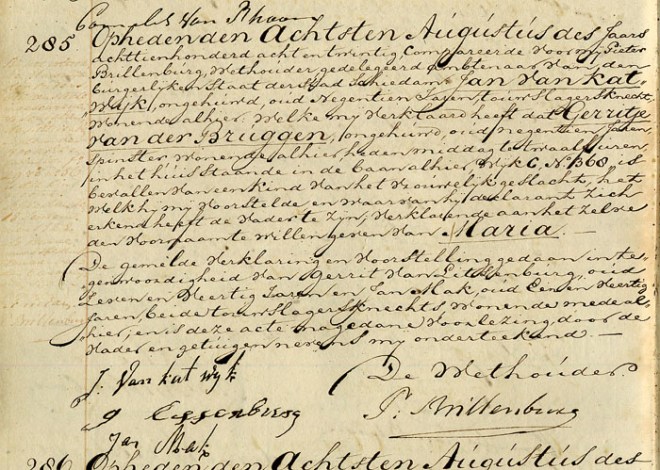 Cornelis Van Rhoon
285 Opheden den Achtsten Augustus des Jaars
achttienhonderd acht en twintig Compareerde voor my Pieter
Brillenburg, Wethouder, gedelegeerd ambtenaar van den
burgerlyken Staat der Stad Schiedam Jan van kat,
Wyk, ongehuwd, oud Negentien Jaren, touwslagersknecht,
Wonende alhier. Welke my verklaard heeft dat Gerritje
van der Bruggen, ongehuwd, oud negentien Jaren,
Spinster, Wonende alhier, heden middag te twaalf uren,
in het huis Staande in de Baan alhier, Wyk C, No. 1368, is
bevallen van een kind van het Vrouwelyk geslacht, het
Welk hy my voorstelde en waarvan hy declarant zich
erkend heeft de vader te zyn, verklarende aan het zelve
den Voornaam te willen geven van Maria. —
De gemelde verklaring en voorstelling gedaan in te,
genwoordigheid van Gerrit van oud
Zeven en Veertig Jaren en Jan Mak, oud Een en Veertig
Jaren, beide touwslagersknechts, Wonende mede al,
hier, en is deze acte na gedane voorlezing door de
Vader en getuigen nevens my onderteekend. —
J. Van kat wyk
De Wethouder
g
P. Brillenburg
Jan Mak
286 Opheden den Achtsten Augustus des